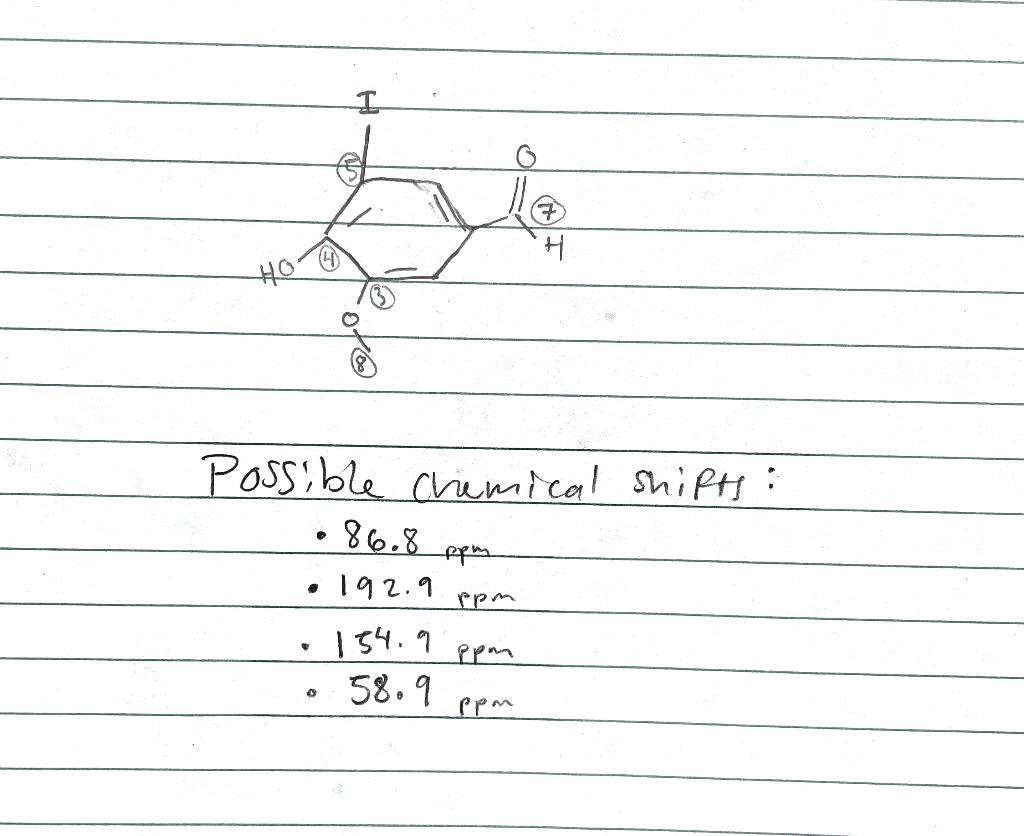 I
⑤
O
⑦
H
HO
④
③
O
⑧
Possible chemical shifts:
• 86.8 ppm
• 192.9 ppm
• 154.9 ppm
• 58.9 ppm